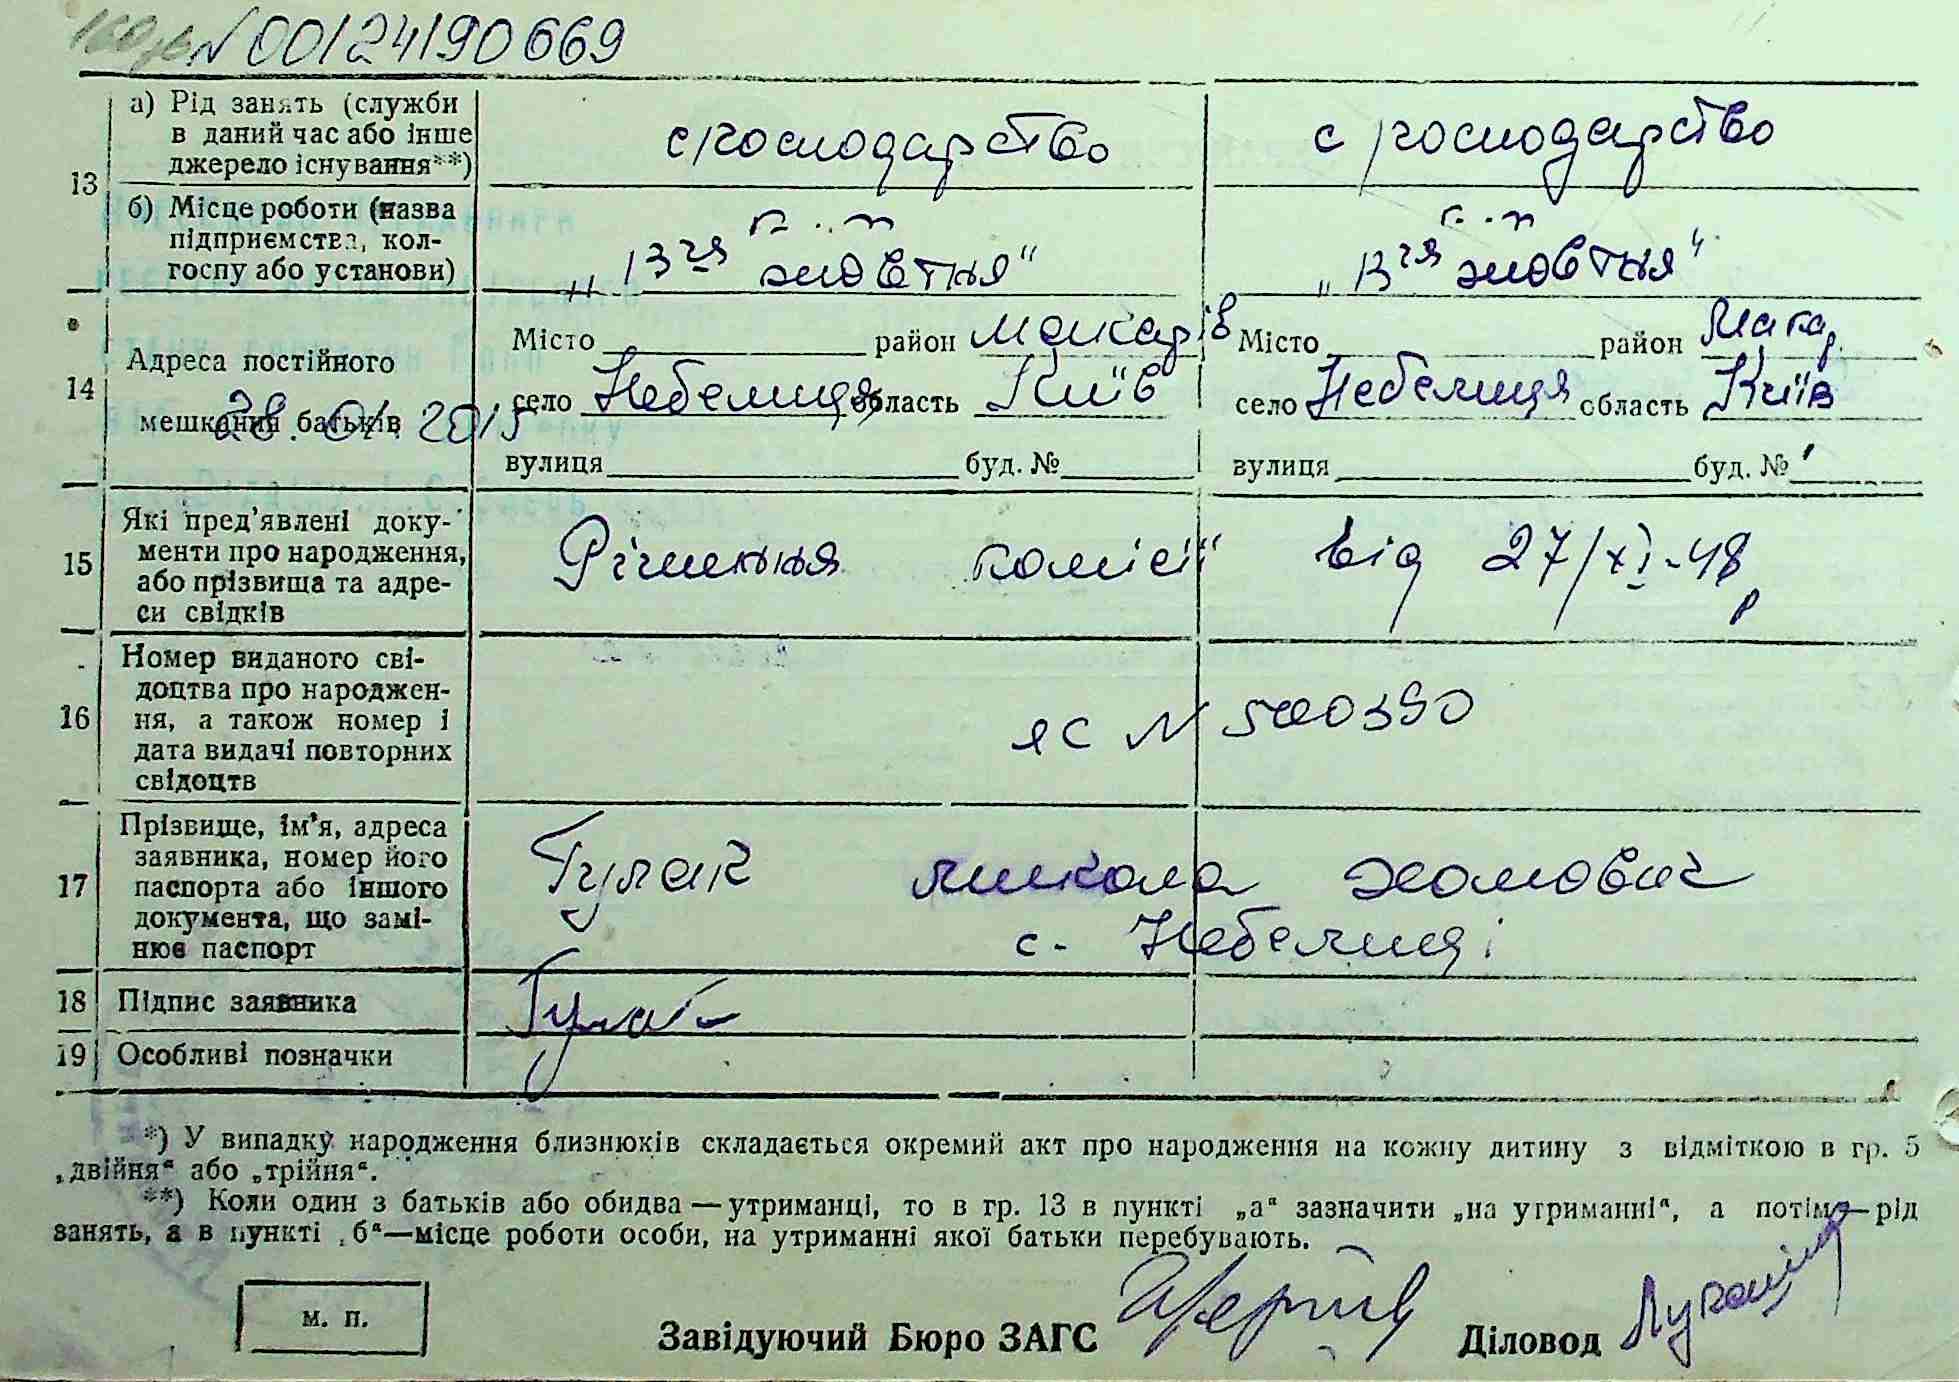 N 00124190669
13 а) Рід занять (служби в даний час або інше джерело існування**) с/господарство с/господарство
б) Місце роботи (назва підприємства, колгоспу або установи) „13 ля жовтня" „13 ля жовтня"
14 Адреса постійного мешкання батьків
28.01.2015
Місто район Макарів Місто район Макар.
село Небелиця область Київ село Небелиця область Київ
вулиця буд. № вулиця буд. №
15 Які пред'явлені доку-
менти про народження,
або прізвища та адре-
си свідків
Рішення комісії від 27/XI-48 р
16 Номер виданого сві-
доцтва про народжен-
ня, а також номер і
дата видачі повторних
свідоцтв
ЯС N 500390
17 Прізвище, ім'я, адреса
заявника, номер його
паспорта або іншого
документа, що замі-
нює паспорт
Гулак Микола Хомович
с. Небелиці
18 Підпис заявника Гулак
19 Особливі позначки
*) У випадку народження близнюків складається окремий акт про народження на кожну дитину з відміткою в гр. 5
„двійня“ або „трійня“.
**) Коли один з батьків або обидва—утриманці, то в гр. 13 в пункті „а“ зазначити „на утриманні“, а потім—рід
занять, а в пункті „б“—місце роботи особи, на утриманні якої батьки перебувають.
м. п.
Завідуючий Бюро ЗАГС Діловод